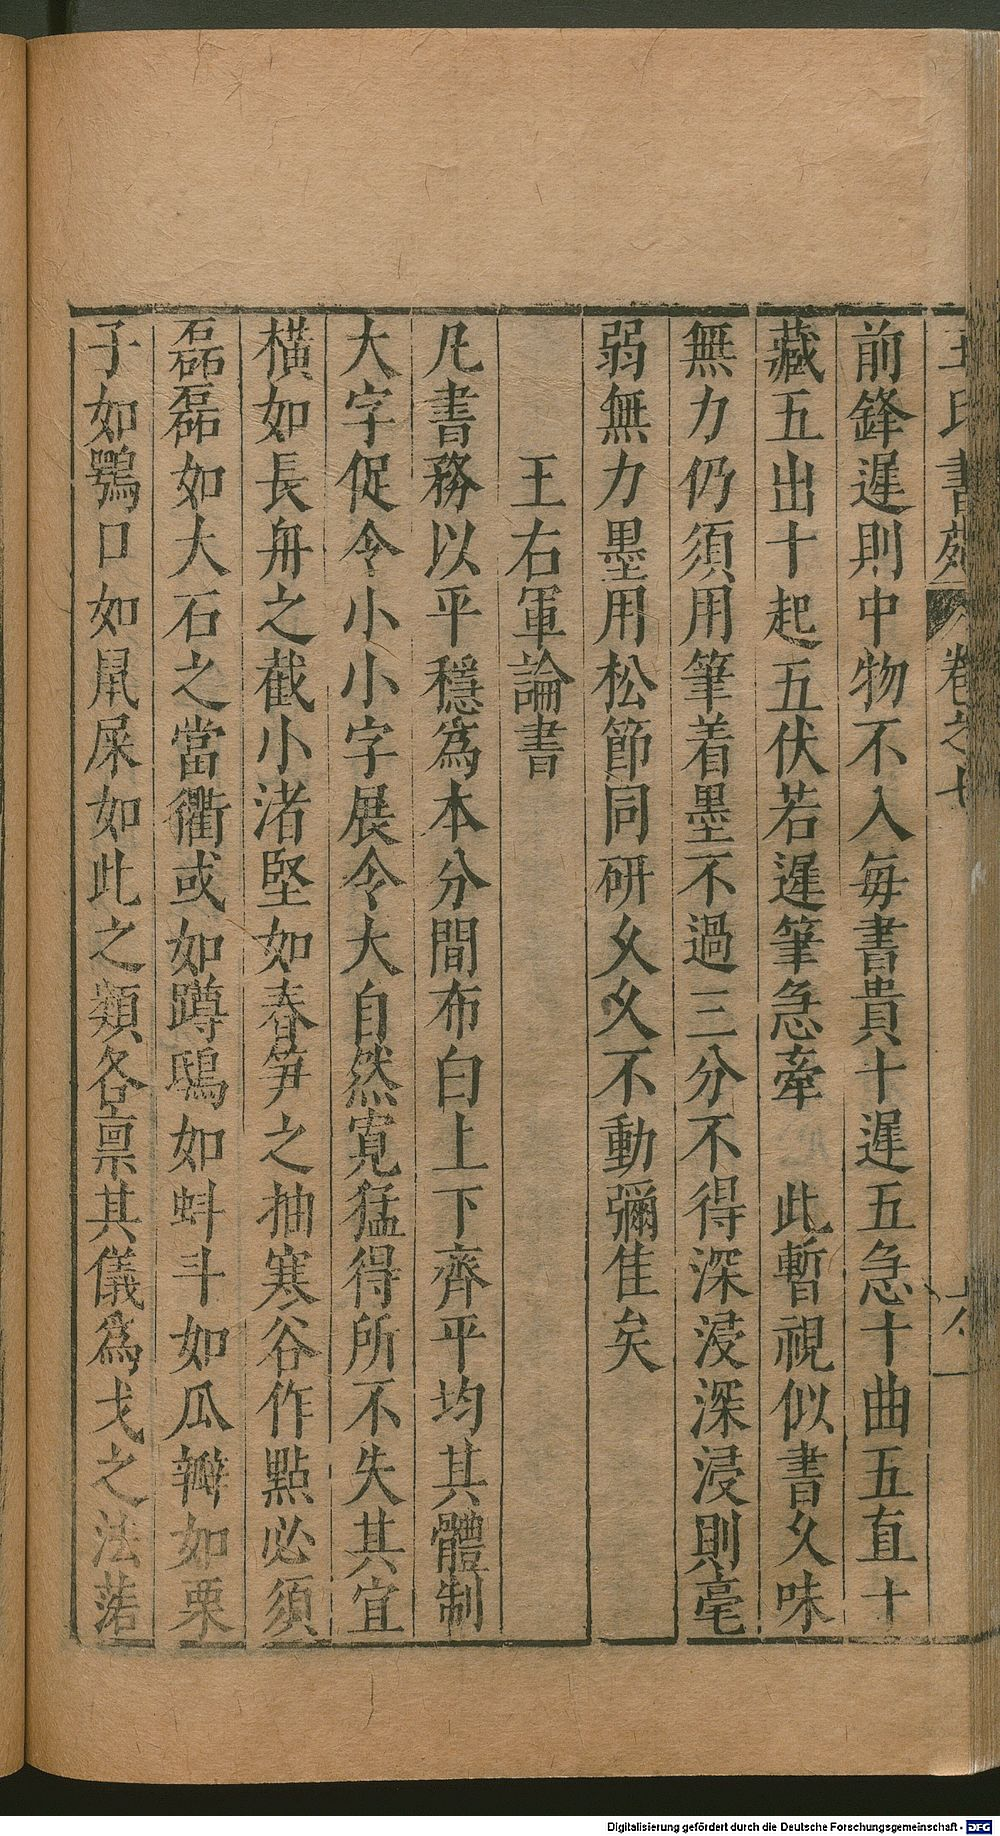 王氏書苑 卷之七
前鋒遲則中物不入每書貴十遲五急十曲五直十
藏五出十起五伏若遲筆急牽 此暫視似書久味
無力仍須用筆着墨不過三分不得深浸深浸則毫
弱無力墨用松節同研久久不動彌佳矣
王右軍論書
凡書務以平穩為本分間布白上下齊平均其體制
大字促令小小字展令大自然寬猛得所不失其宜
橫如長舟之截小渚堅如春笋之抽寒谷作點必須
磊磊如大石之當衢或如蹲鴟如蚪斗如瓜瓣如栗
子如鶚口如鼠屎如此之類各禀其儀為戈之法落
Digitalisierung gefördert durch die Deutsche Forschungsgemeinschaft - DFG